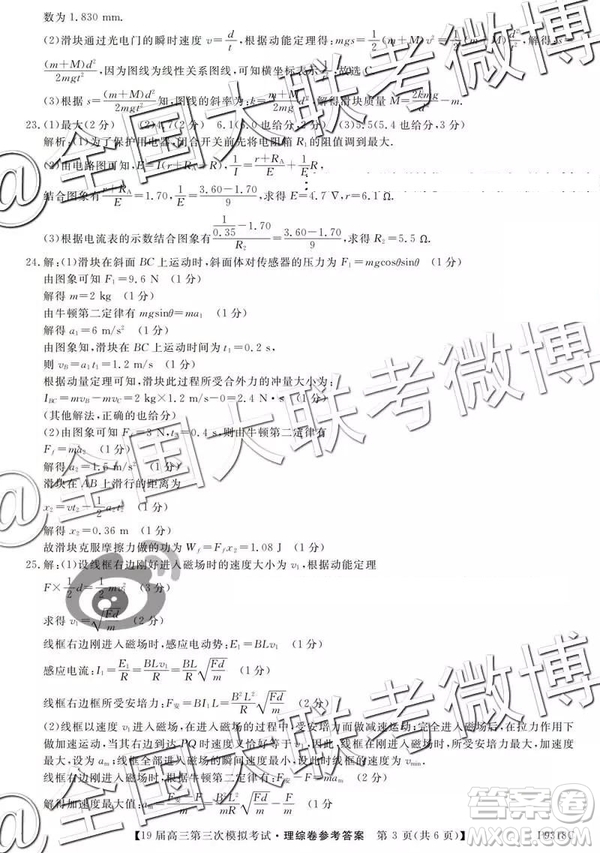 数为 1.830 mm.
(2)滑块通过光电门的瞬时速度 v=d/t,根据动能定理得:mgs=1/2(m+M)v²=1/2(m+M)(d/t)²,解得s=
(m+M)d²/2mgt²,因为图线为线性关系图线,可知横坐标表示
(3)根据 s=(m+M)d²/2mgt²知:图线的斜率为:k=(m+M)d²/2mg,解得滑块质量 M=2kmg/d²-m.
23.(1)最大(2分) (2)4.7(2分) 6.1(6.0也给分,2分) (3)5.5(5.4也给分,2分)
解析:(1)为了保护用电器,闭合开关前先将电阻箱 R₁的阻值调到最大.
(2)由电路图可知,E=I(r+R_A+R),1/I=(r+R_A)/E+1/E R,
结合图象有(r+R_A)/E=1.70,1/E=(3.60-1.70)/9,求得 E=4.7 V,r=6.1 Ω.
(3)根据电流表的示数结合图象有(1/0.35-1.70)/R₂=(3.60-1.70)/9,求得 R₂=5.5 Ω.
24.解:(1)滑块在斜面 BC 上运动时,斜面体对传感器的压力为 F₁=mgcosθsinθ (1分)
由图象可知 F₁=9.6 N (1分)
解得 m=2 kg (1分)
由牛顿第二定律有 mgsinθ=ma₁ (1分)
解得 a₁=6 m/s² (1分)
由图象知,滑块在 BC 上运动时间为 t₁=0.2 s,
则 v_B=a₁t₁=1.2 m/s (1分)
根据动量定理可知此过程所受合外力的冲量大小为:
I_BC=mv_B-mv_C=2 kg×1.2 m/s-0=2.40 N·s (1分)
(其他解法,正确的也给分)
(2)由图象可知 F_f=3 N,t₂=0.4 s,则由牛顿第二定律有
F_f=ma₂ (1分)
解得 a₂=1.5 m/s² (1分)
滑块在 AB 上滑行的距离为
x₂=vt₂-1/2a₂t₂² (1分)
解得 x₂=0.36 m (1分)
故滑块克服摩擦力做的功为 W_f=F_f x₂=1.08 J (1分)
25.解:(1)设线框右边刚好进入磁场时的速度大小为 v₁,根据动能定理
F×1/2d=1/2mv₁² (2分)
求得 v₁=√(Fd/m)
线框右边刚进入磁场时,感应电动势:E₁=BLv₁ (1分)
感应电流:I₁=E₁/R=BLv₁/R=BL/R √(Fd/m) (1分)
线框右边所受安培力:F安=BI₁L=B²L²/R √(Fd/m) (1分)
(2)线框以速度 v₁进入磁场,在进入磁场的过程中,受安培力而做减速运动;完全进入磁场后,在拉力作用下
做加速运动,当其右边到达PQ时速度又恰好等于v₁因此,线框右边刚进入磁场时,线框的加速度最
大,设为 a_m;线框全部进入磁场的瞬间速度最小,设此时线框的速度为 v_min.
线框右边刚进入磁场时,有:F安-F=ma_m (1分)
解得加速度最大值:
【19届高三第三次模拟考试·理综卷参考答案 第 3 页(共 6 页)】
19318C
@全国大联考微博
@全国大联考微博
@全国大联考微博
答案圈